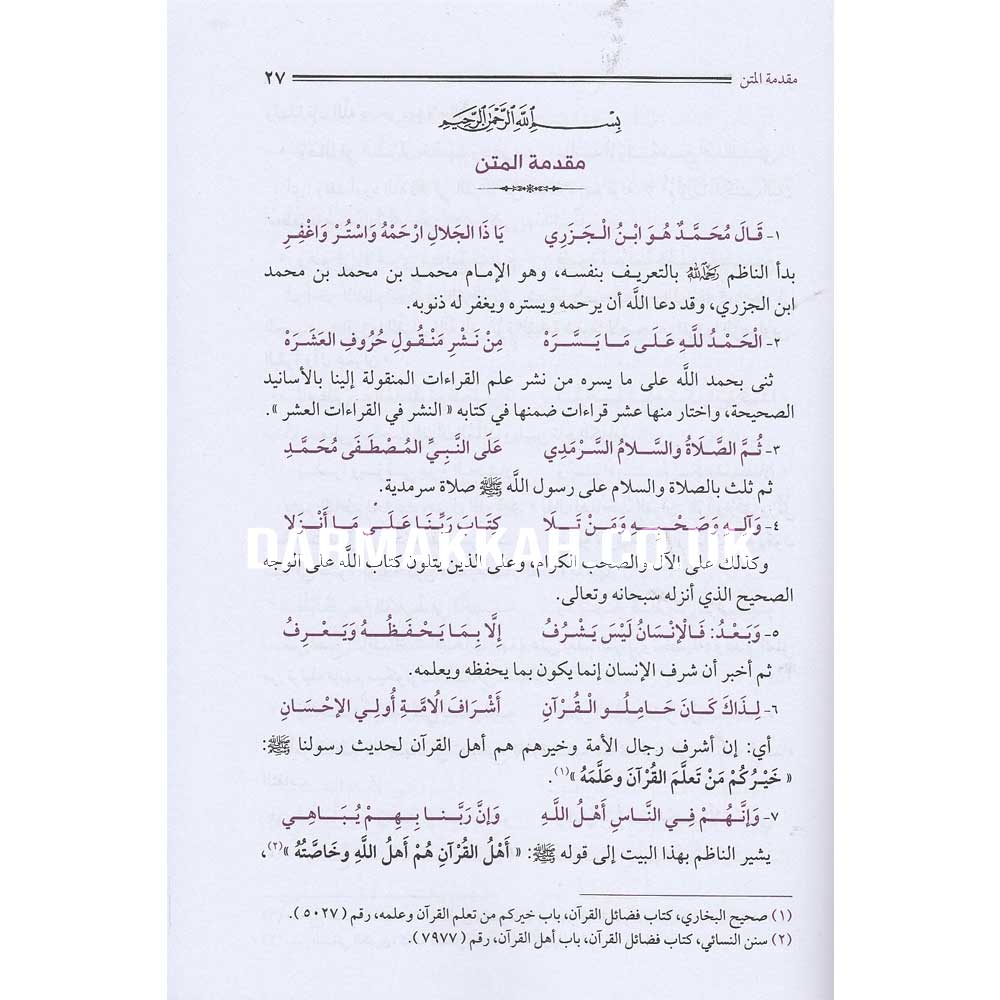 مقدمة المتن ٢٧
بِسْمِ ٱللَّهِ ٱلرَّحْمَٰنِ ٱلرَّحِيمِ
مقدمة المتن
١- قَالَ مُحَمَّدٌ هُوَ ابْنُ الْجَزَرِي يَا ذَا الجَلالِ ارْحَمْهُ وَاسْتُرْ وَاغْفِرِ
بدأ الناظم رَحِمَهُ اللَّهُ بالتعريف بنفسه، وهو الإمام محمد بن محمد بن محمد
ابن الجزري، وقد دعا اللَّه أن يرحمه ويستره ويغفر له ذنوبه.
٢- الْحَمْدُ للَّهِ عَلَى مَا يَسَّرَهْ مِنْ نَشْرِ مَنْقُولِ حُرُوفِ العَشَرَهْ
ثنى بحمد اللَّه على ما يسره من نشر علم القراءات المنقولة إلينا بالأسانيد
الصحيحة، واختار منها عشر قراءات ضمنها في كتابه « النشر في القراءات العشر ».
٣- ثُمَّ الصَّلَاةُ والسَّلامُ السَّرْمَدِي عَلَى النَّبِيِّ المُصْطَفَى مُحَمَّدِ
ثم ثلث بالصلاة والسلام على رسول اللَّه ﷺ صلاة سرمدية.
٤- وَآلِهِ وَصَحْبِهِ وَمَنْ تَلَا كِتَابَ رَبِّنَا عَلَى مَا أَنْزَلا
DARMAKKAH.CO.UK
وكذلك على الآل والصحب الكرام، وعلى الذين يتلون كتاب اللَّه على الوجه
الصحيح الذي أنزله سبحانه وتعالى.
٥- وَبَعْدُ: فَالْإنْسَانُ لَيْسَ يَشْرُفُ إِلَّا بِمَا يَحْفَظُهُ وَيَعْرِفُ
ثم أخبر أن شرف الإنسان إنما يكون بما يحفظه ويعلمه.
٦- لِذَاكَ كَانَ حَامِلُو الْقُرْآنِ أَشْرَافَ الُامَّةِ أُولِي الإحْسَانِ
أي: إن أشرف رجال الأمة وخيرهم هم أهل القرآن لحديث رسولنا ﷺ:
« خَيْرُكُمْ مَنْ تَعلَّمَ القُرْآنَ وعَلَّمَهُ »(١).
٧- وَإِنَّهُمْ فِي النَّاسِ أَهْلُ اللَّهِ وَإِنَّ رَبَّنا بِهِمْ يُبَاهِي
يشير الناظم بهذا البيت إلى قوله ﷺ: « أَهْلُ القُرْآنِ هُمْ أَهلُ اللَّهِ وخَاصَّتُهُ »(٢)،
(١) صحيح البخاري، كتاب فضائل القرآن، باب خيركم من تعلم القرآن وعلمه، رقم ( ٥٠٢٧ ).
(٢) سنن النسائي، كتاب فضائل القرآن، باب أهل القرآن، رقم ( ٧٩٧٧ ).